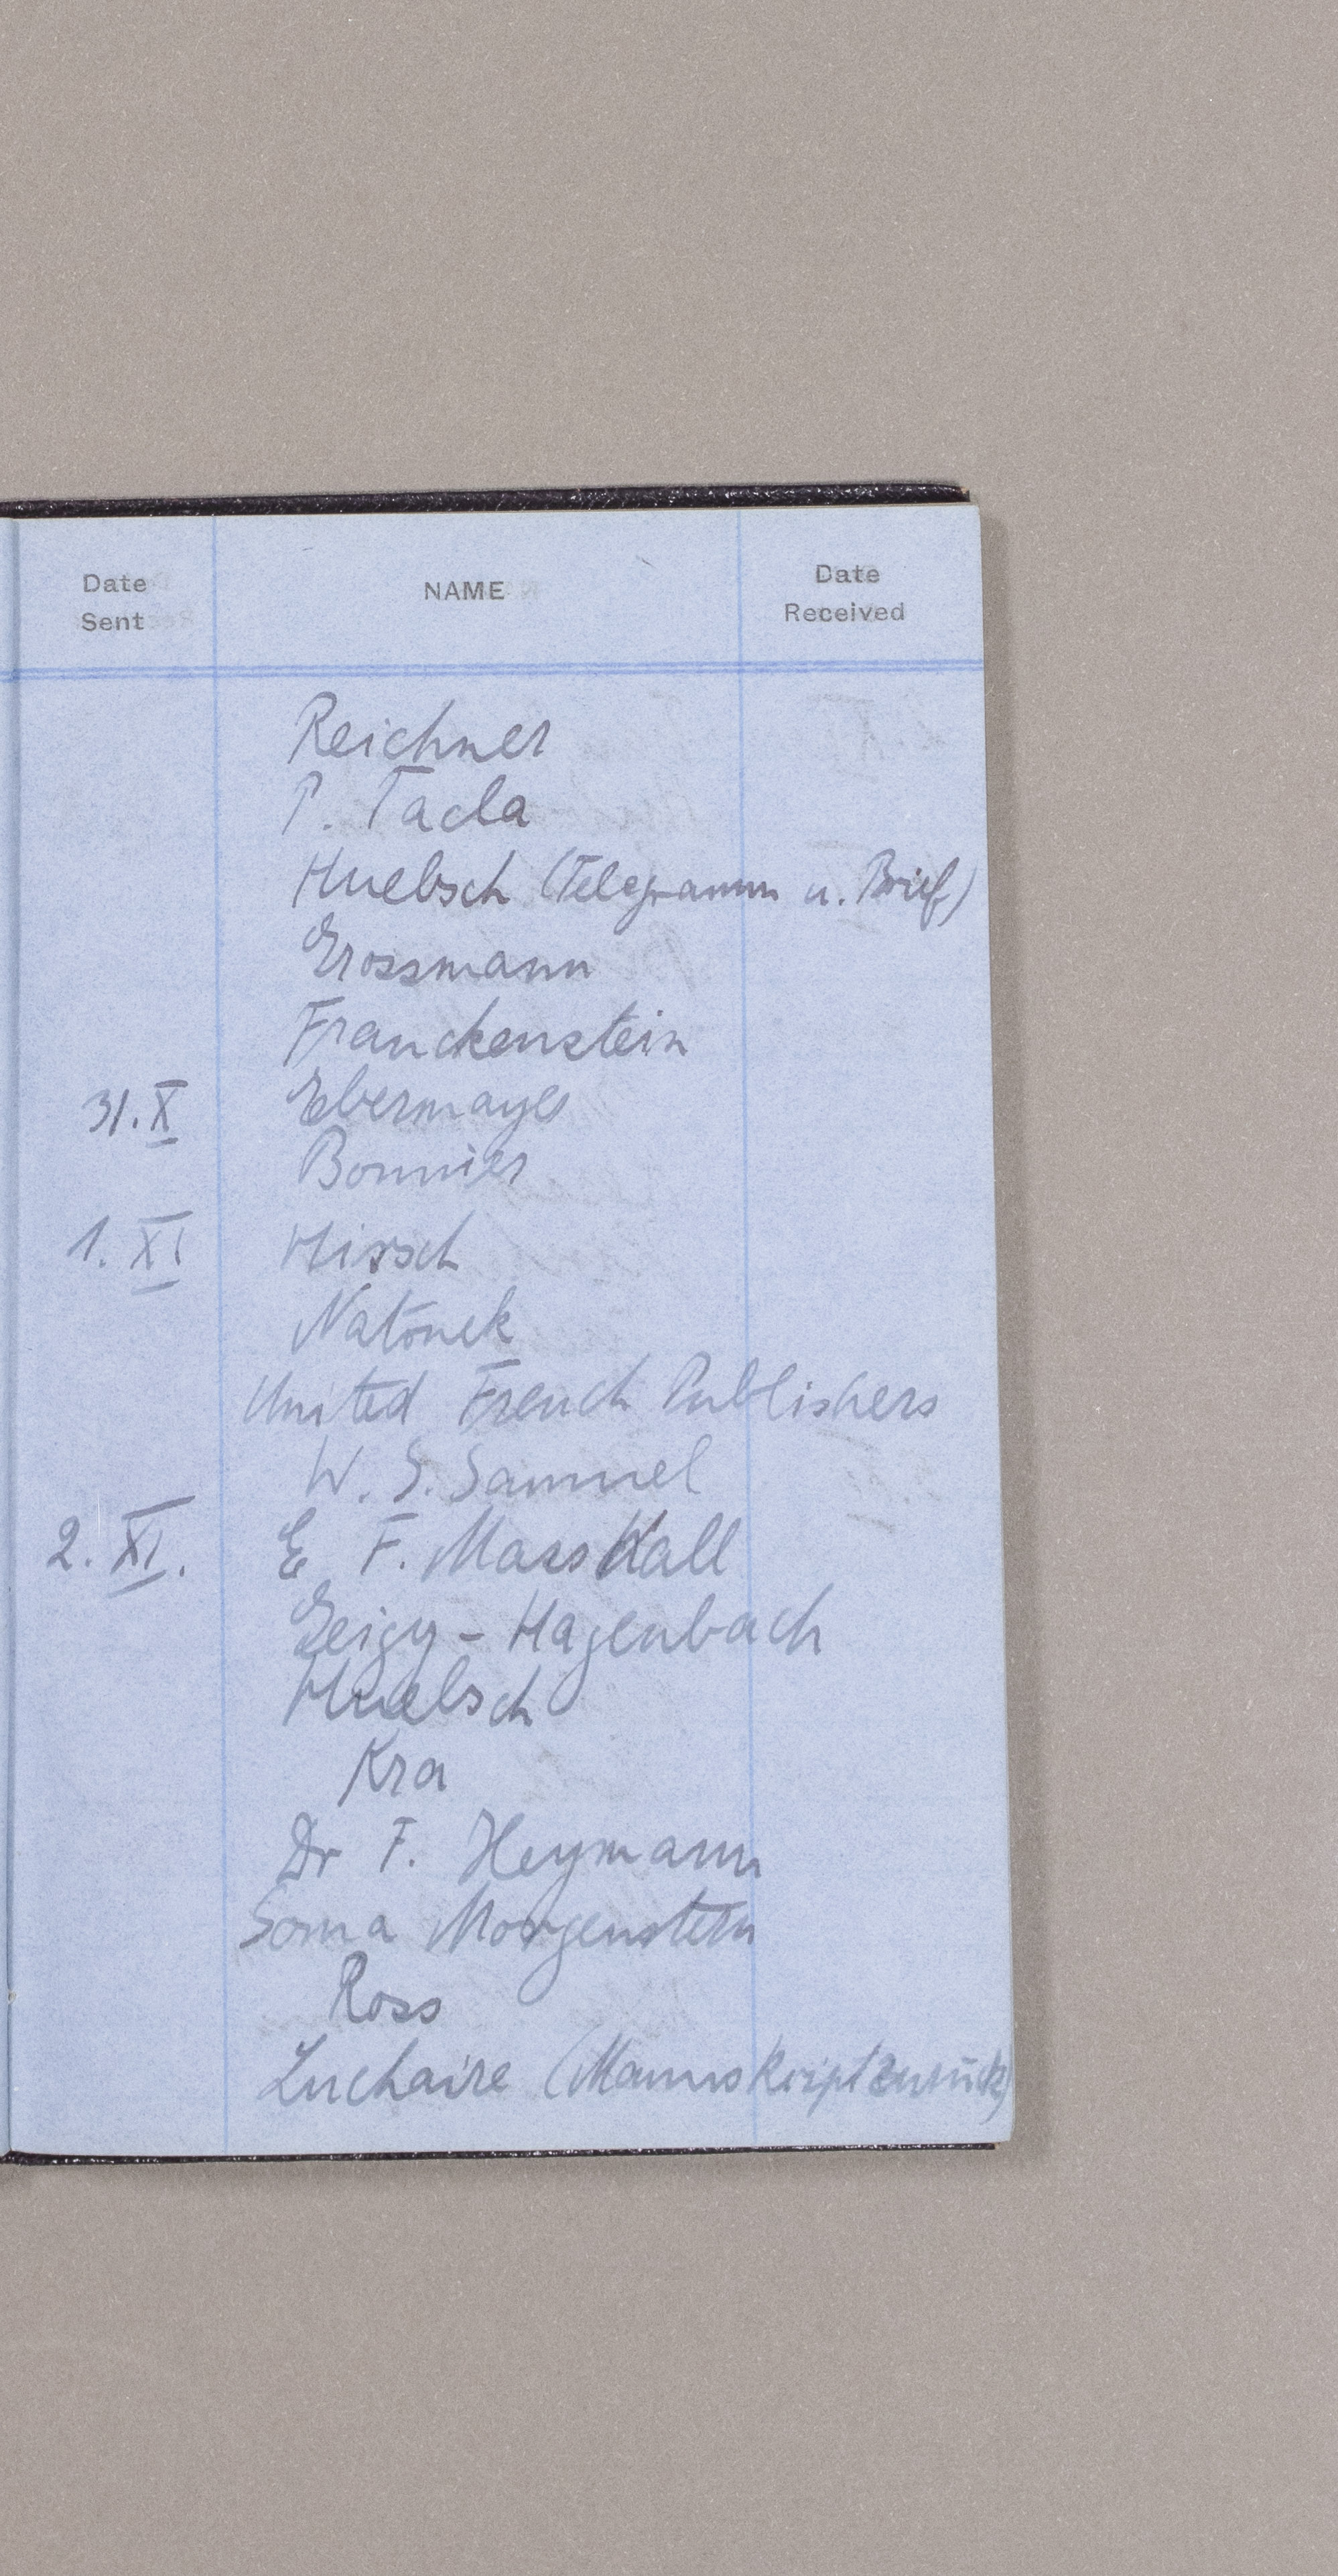 Date Sent NAME Date Received
Reichner
P. Tacla
Huebsch (Telegramm u. Brief)
Grossmann
Franckenstein
31. X Ebermayer
Bonnier
1. XI Hirsch
Natonek
United French Publishers
W. S. Samuel
2. XI. E F. Masskall
Geigy - Hagenbach
Huebsch
Kra
Dr F. Heymann
Soma Morgenstern
Ross
Luchaire (Manuskript zurück)